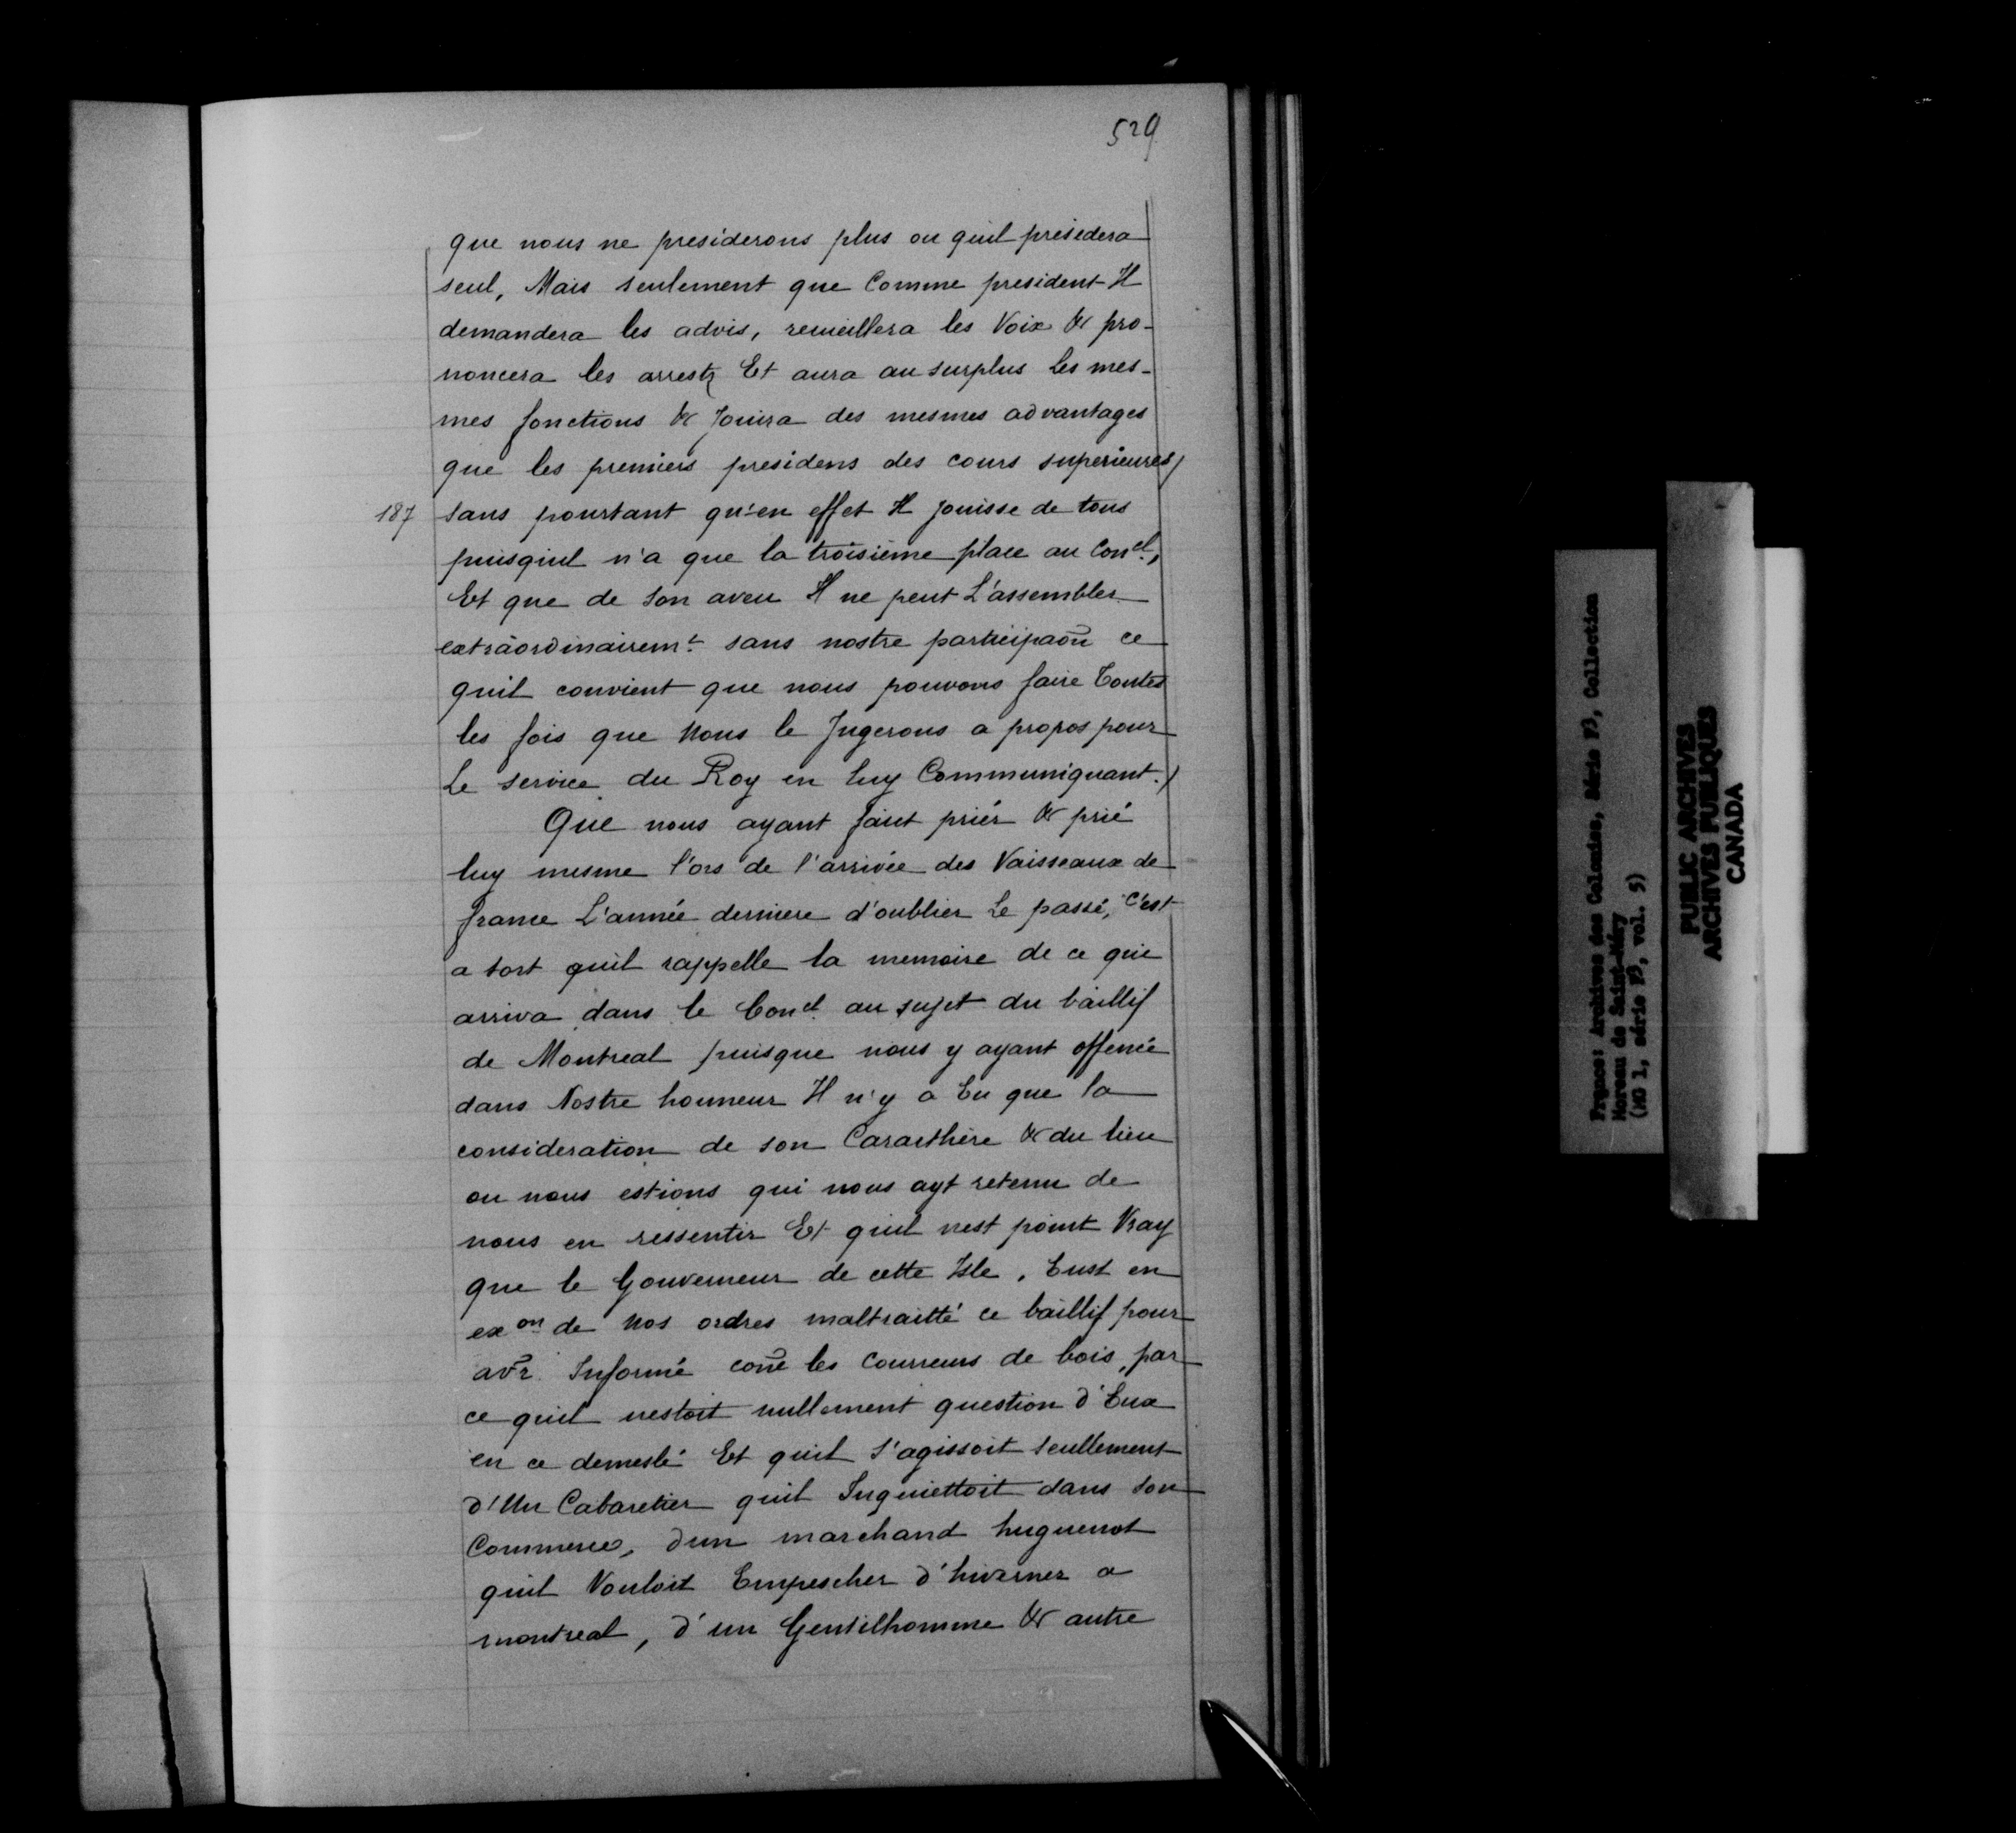 529
que nous ne presiderons plus ou quil presidera
seul, Mais seulement que Comme president Il
demandera les advis, recueillera les Voix & pro-
noncera les arrests Et aura au surplus Les mes-
mes fonctions & Jouira des mesmes advantages
que les premiers presidens des cours superieures/
187 sans pourtant qu'en effet Il jouisse de tous
puisquil n'a que la troisième place au Con.el,
Et que de son aveu Il ne peut L'assembler
extraordinairem.t sans nostre participaõn ce
quil convient que nous pouvons faire Toutes
les fois que Nous le Jugerons a propos pour
Le service du Roy en luy Communiquant./
Que nous ayant faict priér & prié
luy mesme l'ors de l'arrivée des Vaisseaux de
france L'année derniere d'oublier Le passé, C'est
a tort quil rappelle la memoire de ce qui
arriva dans le Con.el au sujet du baillif
de Montreal puisque nous y ayant offencé
dans Nostre honneur Il n'y a Eu que la
consideration de son Caracthère & du lieu
ou nous estions qui nous ayt retenu de
nous en ressentir Et quil nest point Vray
que le Gouverneur de cette Isle, Eust en
ex.on de Nos ordres maltraitté ce baillif pour
avr̃ Informé coñe les Coureurs de bois, par
ce quil nestoit nullement question d'Eux
en ce demeslé Et quil s'agissoit seullement
d'Un Cabaretier quil Inquiettoit dans son
Commerce, dun marchand huguenot
quil Vouloit Empescher d'hiverner a
montreal, d'un Gentilhomme & autre
France: Archives des Colonies, Série F3, Collection
Moreau de Saint-Méry
(MG 1, série F3, vol. 5)
PUBLIC ARCHIVES
ARCHIVES PUBLIQUES
CANADA